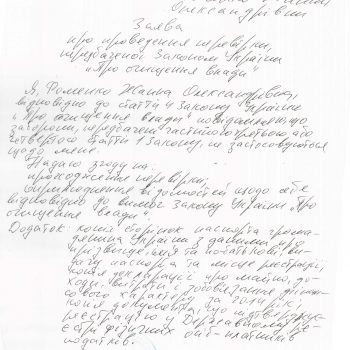 Олександрівни
Заява
про проведення перевірки,
передбаченої Законом України
„Про очищення влади"
Я, Фоменко Жанна Олександрівна,
відповідно до статті 4 Закону України
„Про очищення влади" повідомляю, що
заборони, передбачені частиною третьою або
четвертою статті 1 Закону, не застосовуються
щодо мене.
Надаю згоду на:
проходження перевірки;
оприлюднення відомостей щодо себе
відповідно до вимог Закону України „Про
очищення влади".
Додаток: копії сторінок паспорта грома-
дянина України з даними про
прізвище, ім'я та по батькові, ви-
дачу паспорта та місце реєстрації;
копія декларації про майно, до-
ходи, витрати і зобов'язання фінан-
сового характеру за рік;
копія документа, що підтверджує
реєстрацію у Державному ре-
єстрі фізичних осіб-платників
податків.